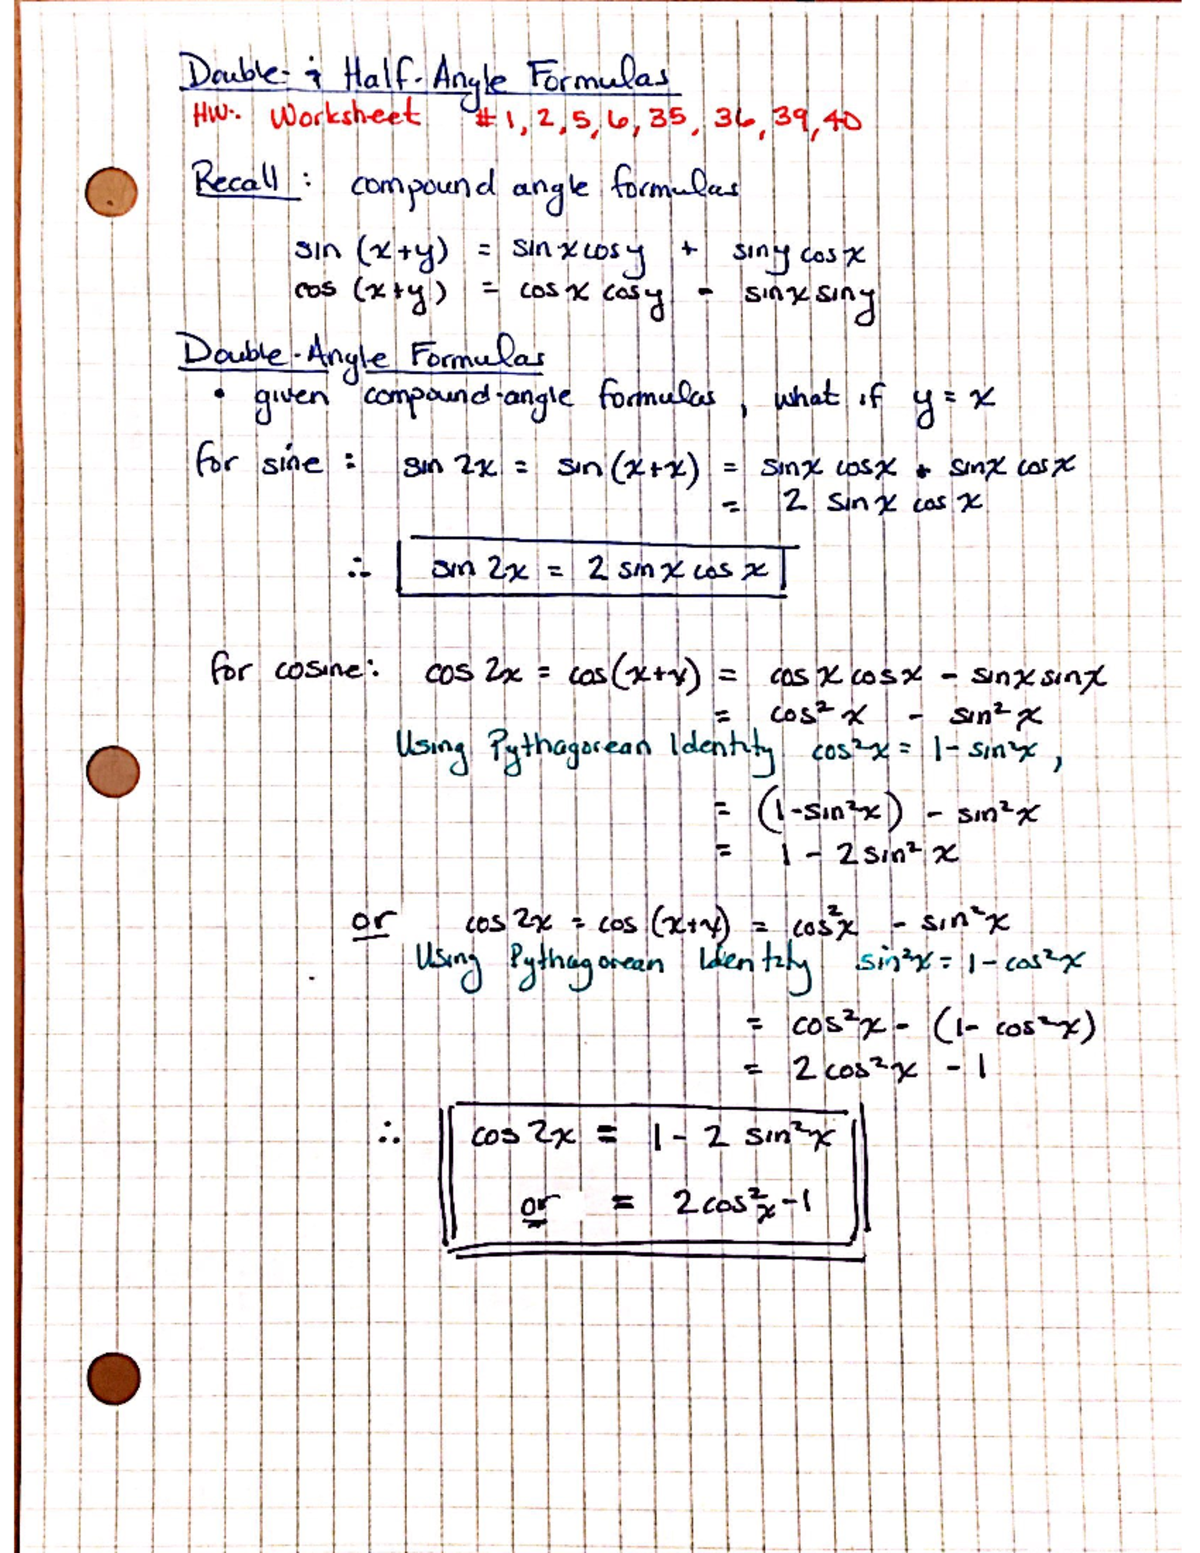 Double- & Half-Angle Formulas
HW: Worksheet #1, 2, 5, 6, 35, 36, 39, 40
Recall: compound angle formulas
sin (x+y) = sin x cos y + sin y cos x
cos (x+y) = cos x cos y - sin x sin y
Double-Angle Formulas
• given compound-angle formulas, what if y = x
for sine: sin 2x = sin (x+x) = sin x cos x + sin x cos x
= 2 sin x cos x
∴ sin 2x = 2 sin x cos x
for cosine: cos 2x = cos(x+x) = cos x cos x - sin x sin x
= cos² x - sin² x
Using Pythagorean Identity cos²x = 1 - sin²x,
= (1-sin²x) - sin²x
= 1 - 2 sin² x
or cos 2x = cos (x+x) = cos²x - sin²x
Using Pythagorean Identity sin²x = 1 - cos²x
= cos²x - (1- cos²x)
= 2 cos²x - 1
∴ cos 2x = 1 - 2 sin²x
or = 2 cos²x - 1